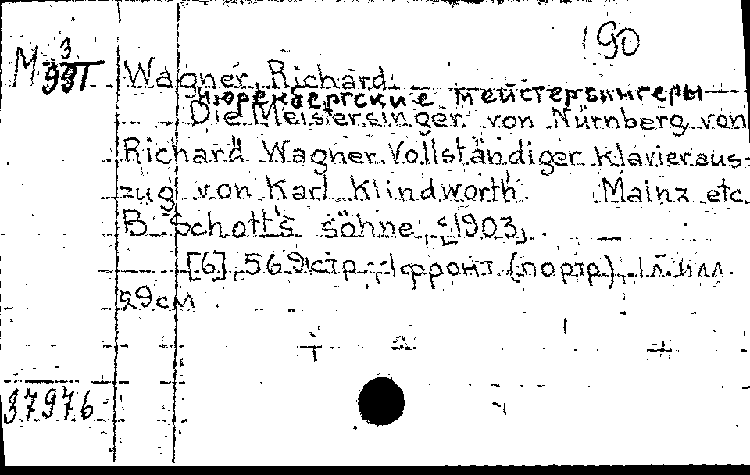 190
M 3/991 Wagner, Richard.
Нюренбергские мейстерзингеры
Die Meistersinger von Nürnberg von
Richard Wagner. Vollständiger Klavieraus-
zug von Karl Klindworth. Mainz etc.
B. Schott's söhne, [1903].
[6], 569 стр., 1 фронт. (портр), 1 л. илл.
29 см
37976